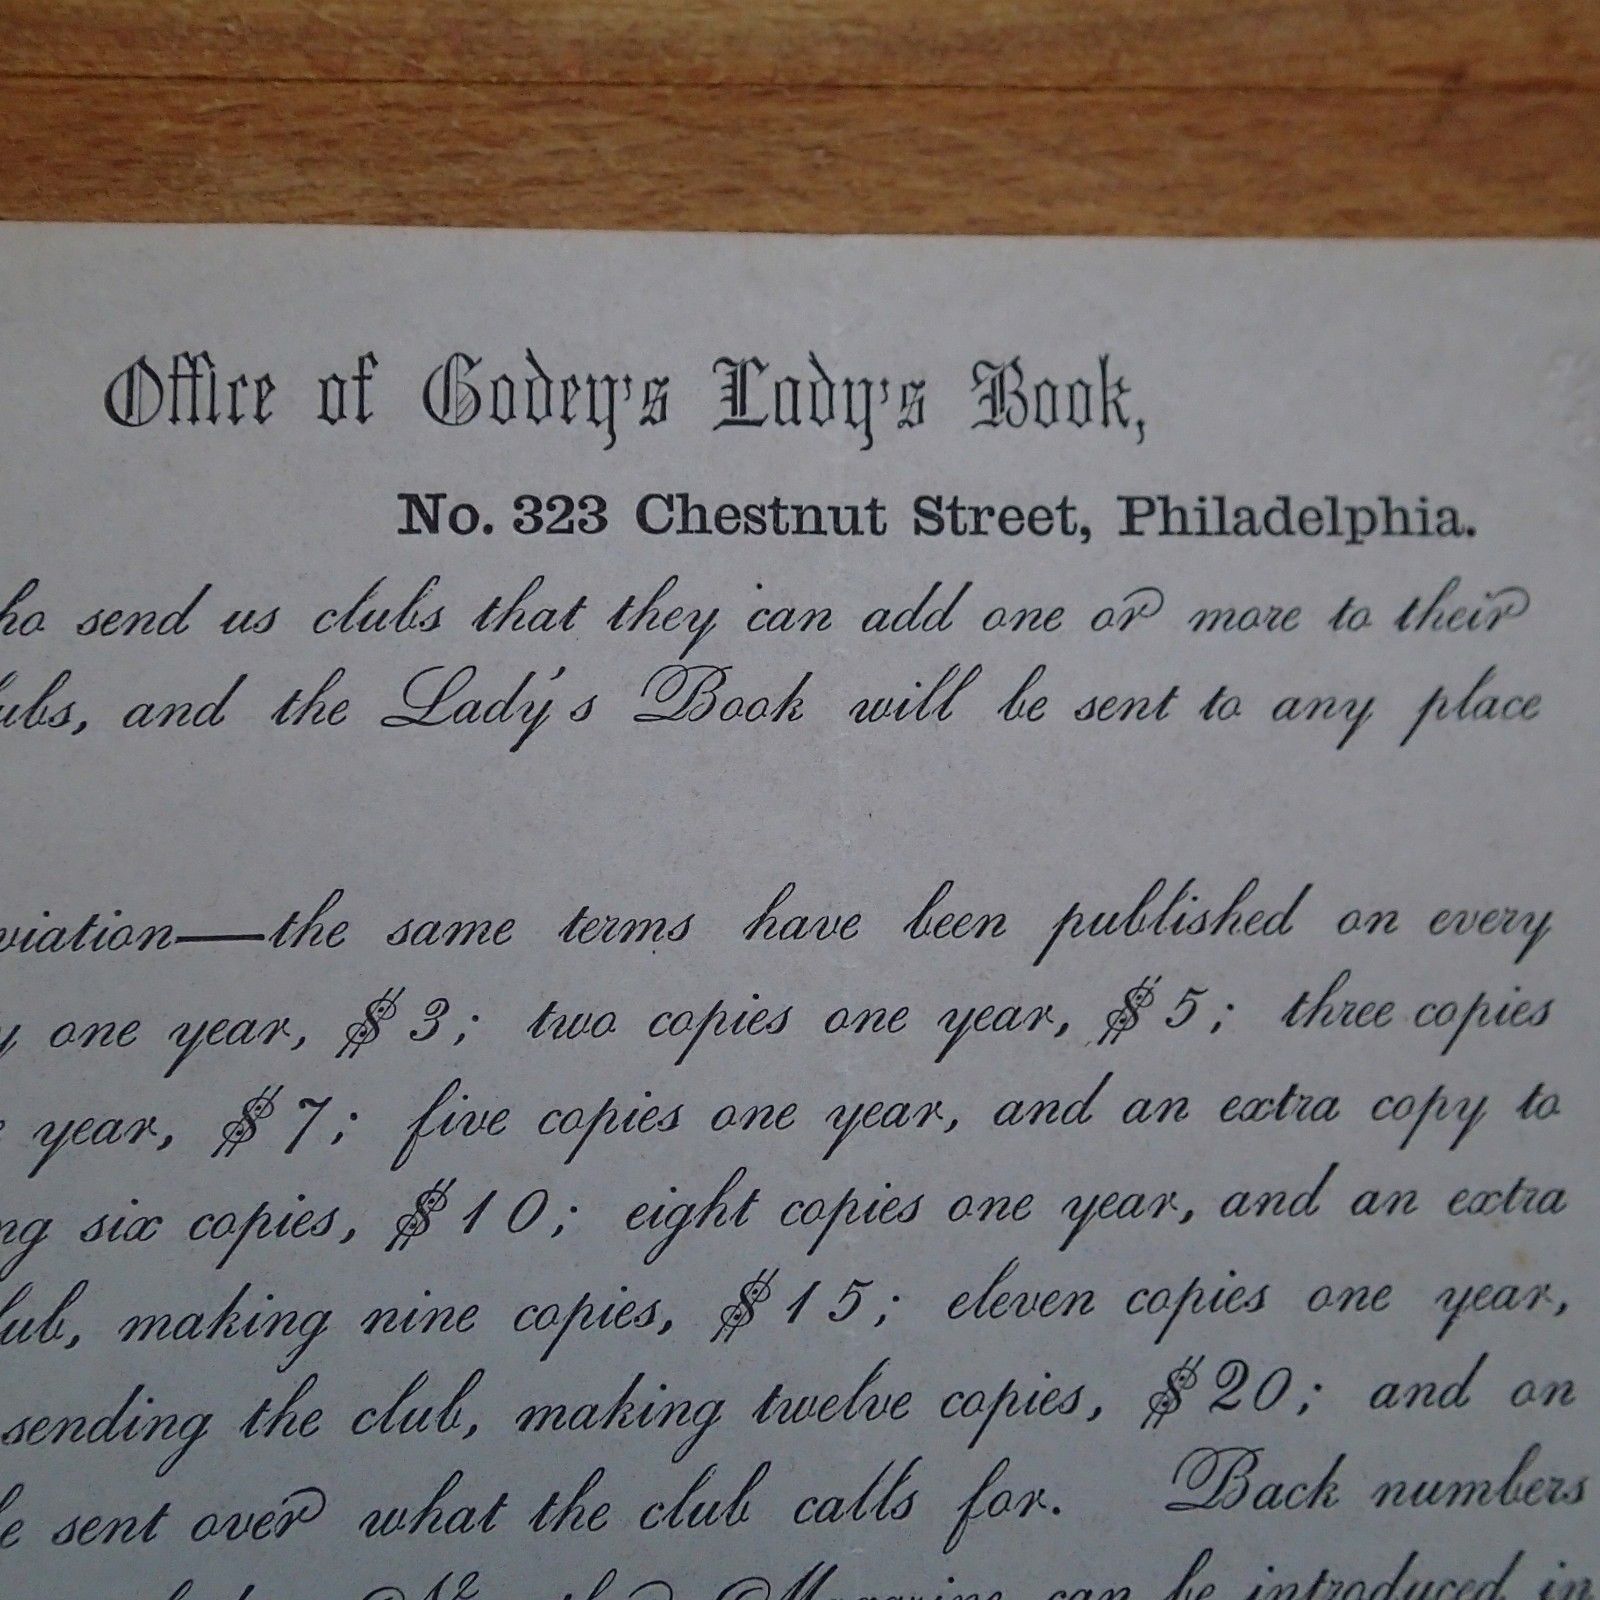 Office of Godey's Lady's Book,
No. 323 Chestnut Street, Philadelphia.
send us clubs that they can add one or more to their
and the Lady's Book will be sent to any place
the same terms have been published on every
one year, $3; two copies one year, $5; three copies
year, $7; five copies one year, and an extra copy to
six copies, $10; eight copies one year, and an extra
making nine copies, $15; eleven copies one year,
sending the club, making twelve copies, $20; and on
sent over what the club calls for. Back numbers
Magazine can be introduced in